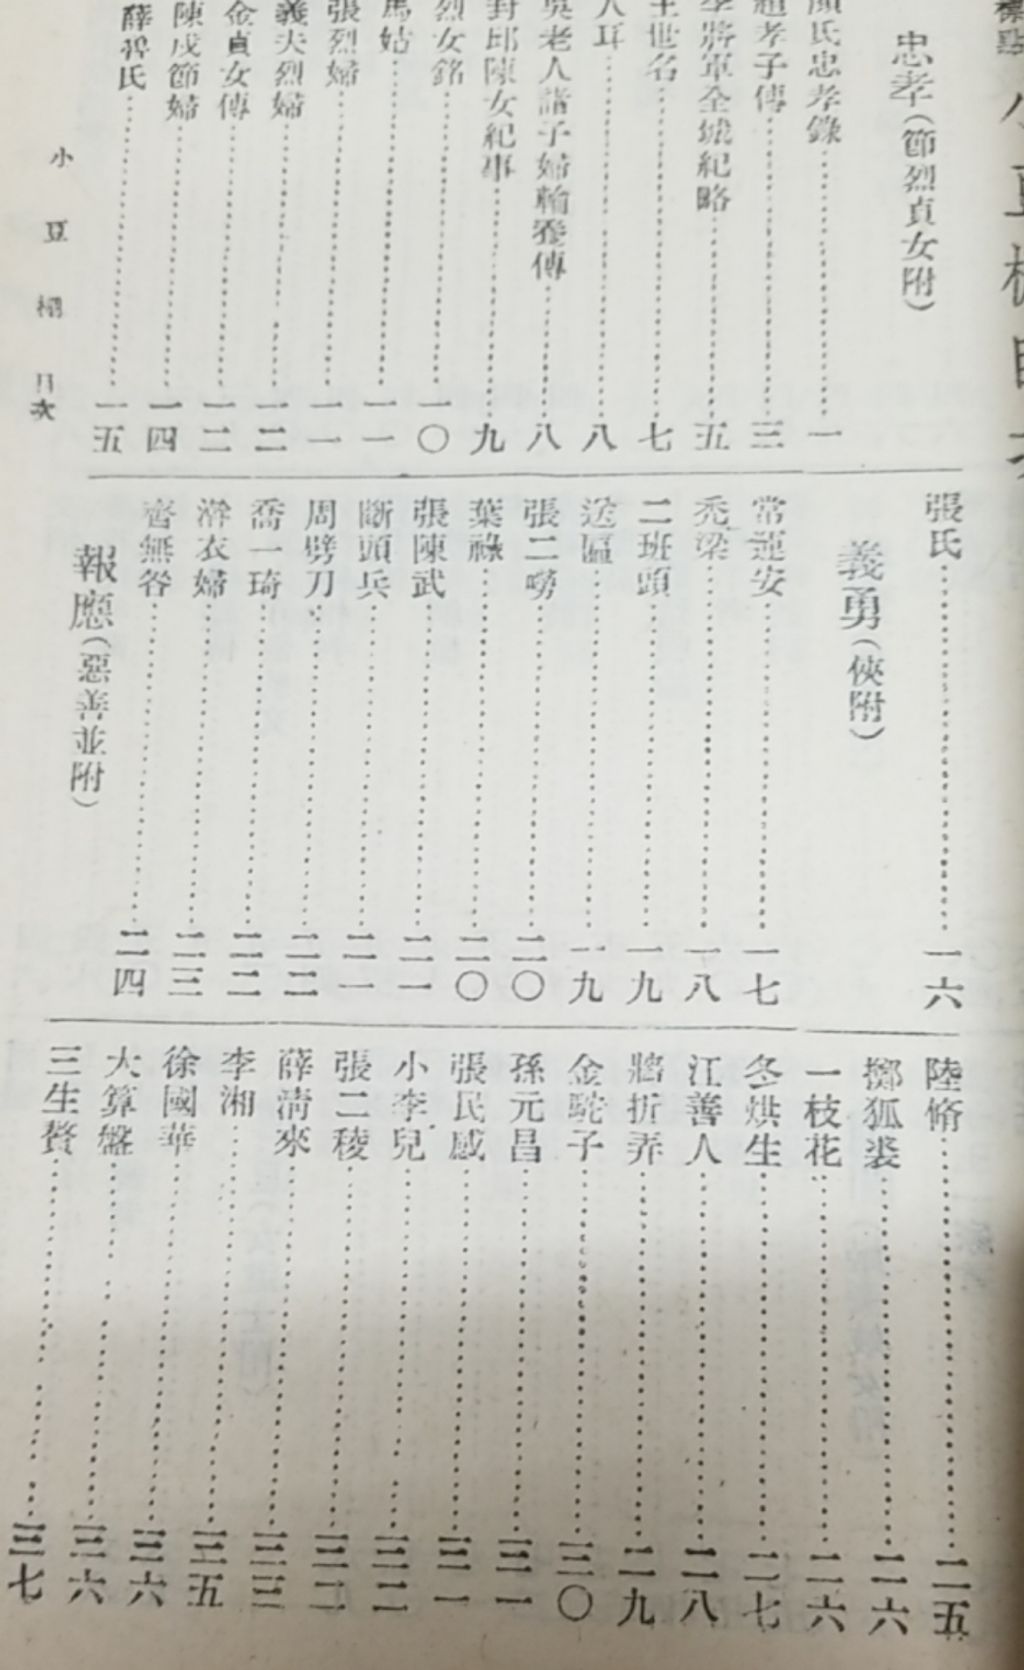 標點 小豆棚目次
忠孝（節烈貞女附）
顏氏忠孝錄 一
趙孝子傳 三
李將軍全城紀略 五
王世名 七
人耳 八
吳老人諸子婦輪養傳 八
封邱陳女紀事 九
烈女銘 一〇
馬姑 一一
張烈婦 一一
義夫烈婦 一二
金貞女傳 一二
陳成節婦 一四
薛碧氏 一五
小豆棚 目次
張氏 一六
義勇（俠附）
常運安 一七
禿梁 一八
二班頭 一九
送區 一九
張二嘮 二〇
葉祿 二〇
張陳武 二一
斷頭兵 二一
周劈刀 二二
喬一琦 二二
澣衣婦 二三
齊無咎 二四
報應（惡善並附）
陸脩 二五
擲狐裘 二六
一枝花 二六
冬烘生 二七
江善人 二八
將折弄 二九
金駝子 三〇
孫元昌 三一
張民感 三一
小李兒 三二
張二稜 三二
薛清來 三三
李湘 三五
徐國華 三六
大算盤 三六
三生贅 三七